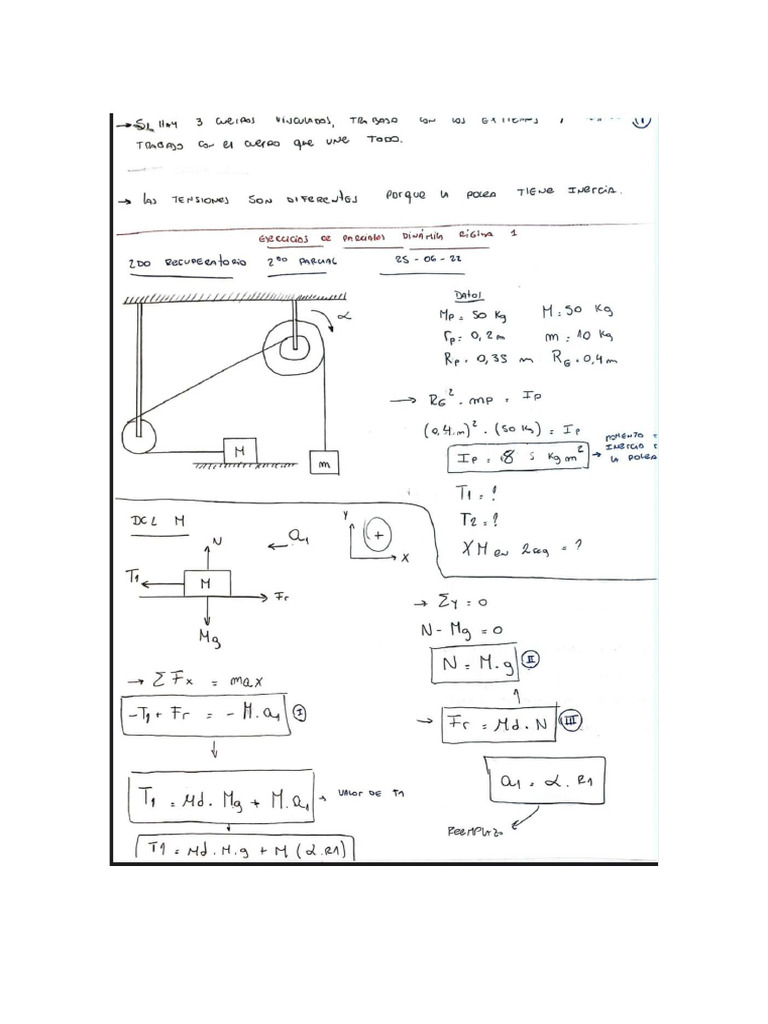 → Si HAY 3 CUERPOS VINCULADOS, TRABAJO CON LOS
TRABAJO CON EL CUERPO QUE UNE TODO.
→ LAS TENSIONES SON DIFERENTES PORQUE LA POLEA TIENE INERCIA.
EJERCICIOS DE PARCIALES DINÁMICA RÍGIDA 1
2DO RECUPERATORIO 2DO PARCIAL 25-06-22
α
M
m
DATOS
Mp = 50 Kg M = 50 Kg
rp = 0,2 m m = 10 Kg
Rp = 0,35 m RG = 0,4 m
→ RG² . mp = Ip
(0,4 m)² . (50 Kg) = Ip
Ip = 8 Kg m²
→ MOMENTO
INERCIA
LA POLEA
T1 = ?
T2 = ?
XM en 2seg = ?
DCL M
N
a1
T1
M
Fr
Mg
Y
X
+
→ ΣFx = max
-T1 + Fr = -M.a1 I
T1 = Md . Mg + M.a1 → VALOR DE T1
T1 = Md . M.g + M (α.R1)
→ ΣY = 0
N - Mg = 0
N = M.g II
→ Fr = Md . N III
a1 = α . R1
REEMPLAZO